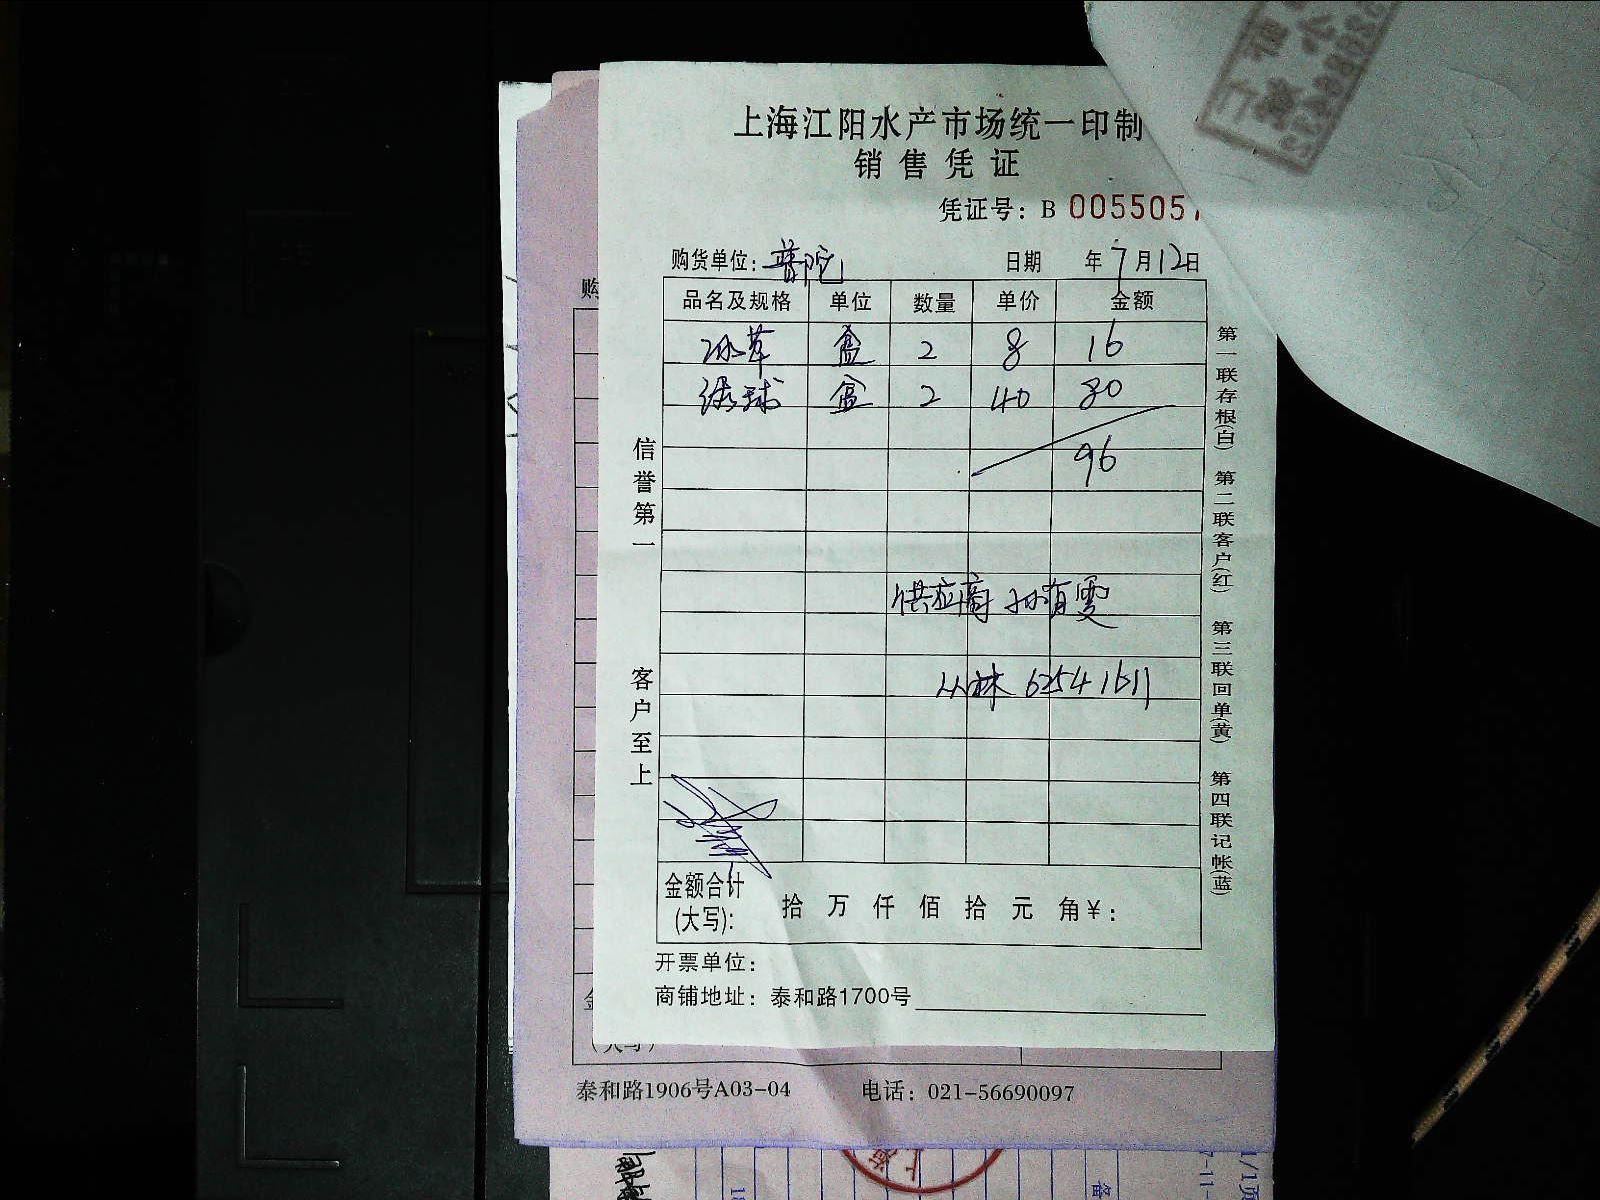 上海江阳水产市场统一印制
销售凭证
凭证号：B 005505
购货单位：普陀 日期 年7月12日
品名及规格 单位 数量 单价 金额
冰草 盒 2 8 16
绿球 盒 2 40 80
96
供应商 孙有雯
丛林 62541611
金额合计(大写)： 拾 万 仟 佰 拾 元 角¥：
开票单位：
商铺地址：泰和路1700号
信誉第一
客户至上
第一联存根(白) 第二联客户(红) 第三联回单(黄) 第四联记帐(蓝)
购
(大写)
泰和路1906号A03-04 电话：021-56690097